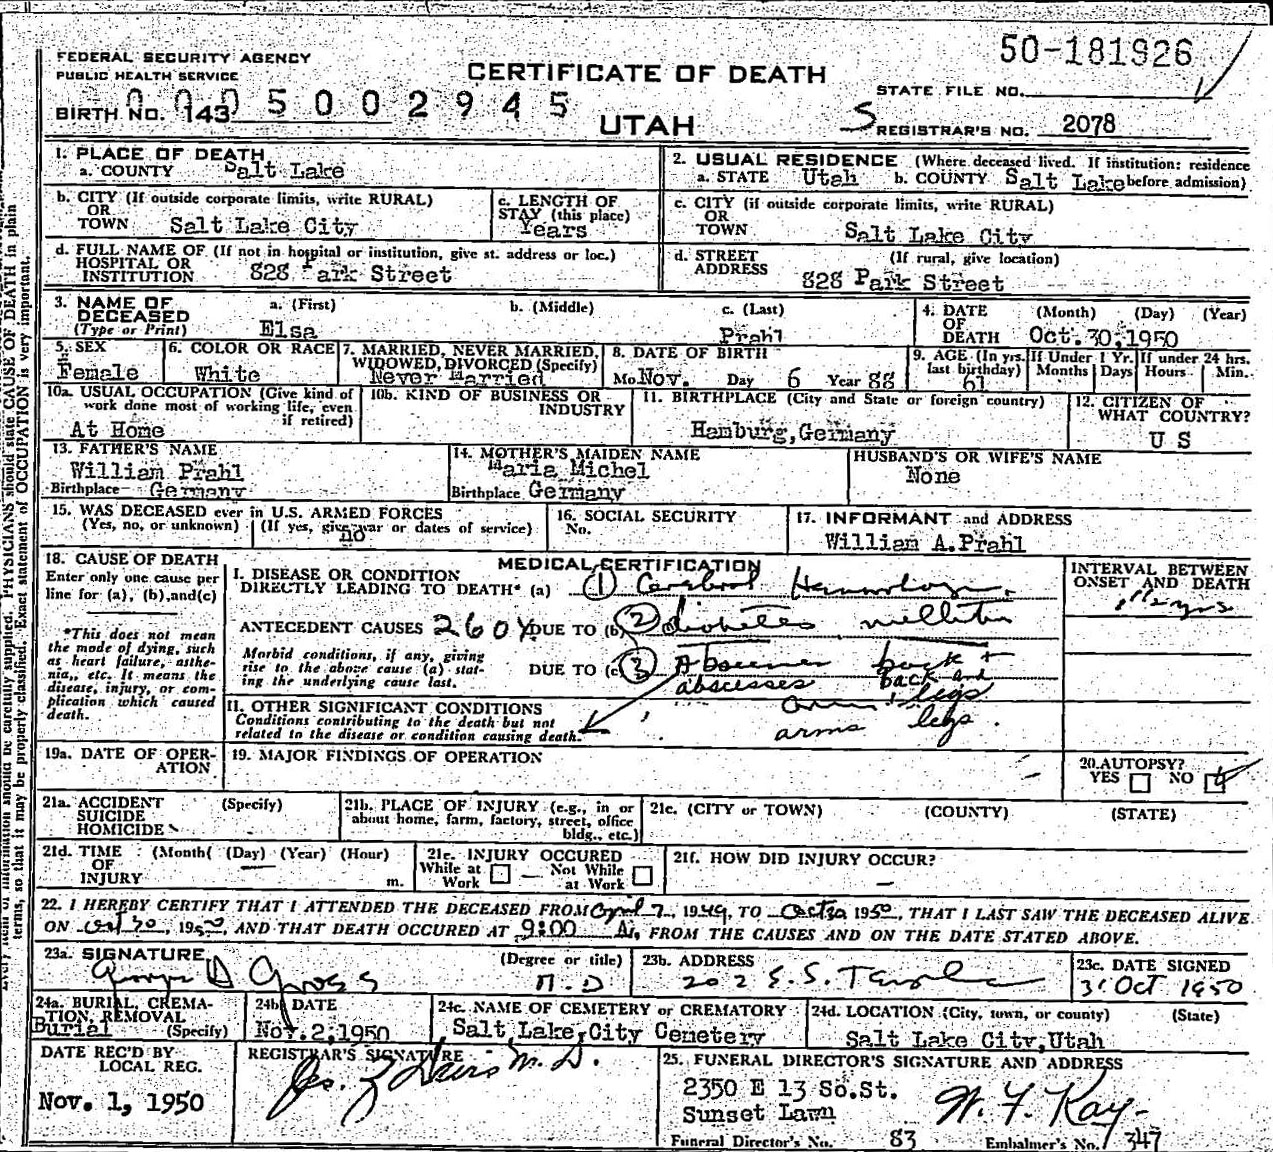 50-181926
FEDERAL SECURITY AGENCY
PUBLIC HEALTH SERVICE
CERTIFICATE OF DEATH
STATE FILE NO.
BIRTH NO. 143 0005002945
UTAH
S REGISTRAR'S NO. 2078
1. PLACE OF DEATH
a. COUNTY Salt Lake
2. USUAL RESIDENCE (Where deceased lived. If institution: residence
a. STATE Utah b. COUNTY Salt Lake before admission)
b. CITY (If outside corporate limits, write RURAL)
OR
TOWN Salt Lake City
c. LENGTH OF
STAY (this place)
Years
c. CITY (if outside corporate limits, write RURAL)
OR
TOWN Salt Lake City
d. FULL NAME OF (If not in hospital or institution, give st. address or loc.)
HOSPITAL OR
INSTITUTION 828 Park Street
d. STREET (If rural, give location)
ADDRESS
828 Park Street
3. NAME OF
DECEASED
(Type or Print)
a. (First) b. (Middle) c. (Last)
Elsa Prahl
4. DATE (Month) (Day) (Year)
OF
DEATH Oct. 30, 1950
5. SEX
Female
6. COLOR OR RACE
White
7. MARRIED, NEVER MARRIED,
WIDOWED, DIVORCED (Specify)
Never Married
8. DATE OF BIRTH
Mo. Nov. Day 6 Year 88
9. AGE (In yrs.
last birthday)
61
If Under 1 Yr.
Months Days
If under 24 hrs.
Hours Min.
10a. USUAL OCCUPATION (Give kind of
work done most of working life, even
if retired)
At Home
10b. KIND OF BUSINESS OR
INDUSTRY
11. BIRTHPLACE (City and State or foreign country)
Hamburg, Germany
12. CITIZEN OF
WHAT COUNTRY?
U S
13. FATHER'S NAME
William Prahl
Birthplace Germany
14. MOTHER'S MAIDEN NAME
Maria Michel
Birthplace Germany
HUSBAND'S OR WIFE'S NAME
None
15. WAS DECEASED ever in U.S. ARMED FORCES
(Yes, no, or unknown) (If yes, give war or dates of service)
no
16. SOCIAL SECURITY
No.
17. INFORMANT and ADDRESS
William A. Prahl
18. CAUSE OF DEATH
Enter only one cause per
line for (a), (b), and (c)
*This does not mean
the mode of dying, such
as heart failure, asthe-
nia, etc. It means the
disease, injury, or com-
plication which caused
death.
MEDICAL CERTIFICATION
I. DISEASE OR CONDITION
DIRECTLY LEADING TO DEATH* (a) (1) Cerebral Hemorrhage
ANTECEDENT CAUSES 260X DUE TO (b) (2) diabetes mellitus
Morbid conditions, if any, giving
rise to the above cause (a) stat-
ing the underlying cause last.
DUE TO (c) (3) Abscesses back +
abscesses back and
arms, legs
arms legs.
INTERVAL BETWEEN
ONSET AND DEATH
II. OTHER SIGNIFICANT CONDITIONS
Conditions contributing to the death but not
related to the disease or condition causing death.
19a. DATE OF OPER-
ATION
19. MAJOR FINDINGS OF OPERATION
20. AUTOPSY?
YES NO
21a. ACCIDENT (Specify)
SUICIDE
HOMICIDE
21b. PLACE OF INJURY (e.g., in or
about home, farm, factory, street, office
bldg., etc.)
21c. (CITY or TOWN) (COUNTY) (STATE)
21d. TIME (Month( (Day) (Year) (Hour)
OF
INJURY m.
21e. INJURY OCCURED
While at Work Not While at Work
21f. HOW DID INJURY OCCUR?
22. I HEREBY CERTIFY THAT I ATTENDED THE DECEASED FROM April 7, 1949, TO Oct 30 1950, THAT I LAST SAW THE DECEASED ALIVE
ON Oct 30, 1950, AND THAT DEATH OCCURED AT 9:00 A., FROM THE CAUSES AND ON THE DATE STATED ABOVE.
23a. SIGNATURE (Degree or title)
George D Gross M.D
23b. ADDRESS
202 E. S. Temple
23c. DATE SIGNED
31 Oct 1950
24a. BURIAL, CREMA-
TION, REMOVAL
Burial (Specify)
24b. DATE
Nov. 2, 1950
24c. NAME OF CEMETERY or CREMATORY
Salt Lake, City Cemetery
24d. LOCATION (City, town, or county) (State)
Salt Lake City, Utah
DATE REC'D BY
LOCAL REG.
Nov. 1, 1950
REGISTRAR'S SIGNATURE
M.D.
25. FUNERAL DIRECTOR'S SIGNATURE AND ADDRESS
2350 E 13 So. St.
Sunset Lawn
W. F. Kay
Funeral Director's No. 83 Embalmer's No. 347
PHYSICIANS should state CAUSE OF DEATH in plain
terms, so that it may be properly classified. Exact statement of OCCUPATION is very important.